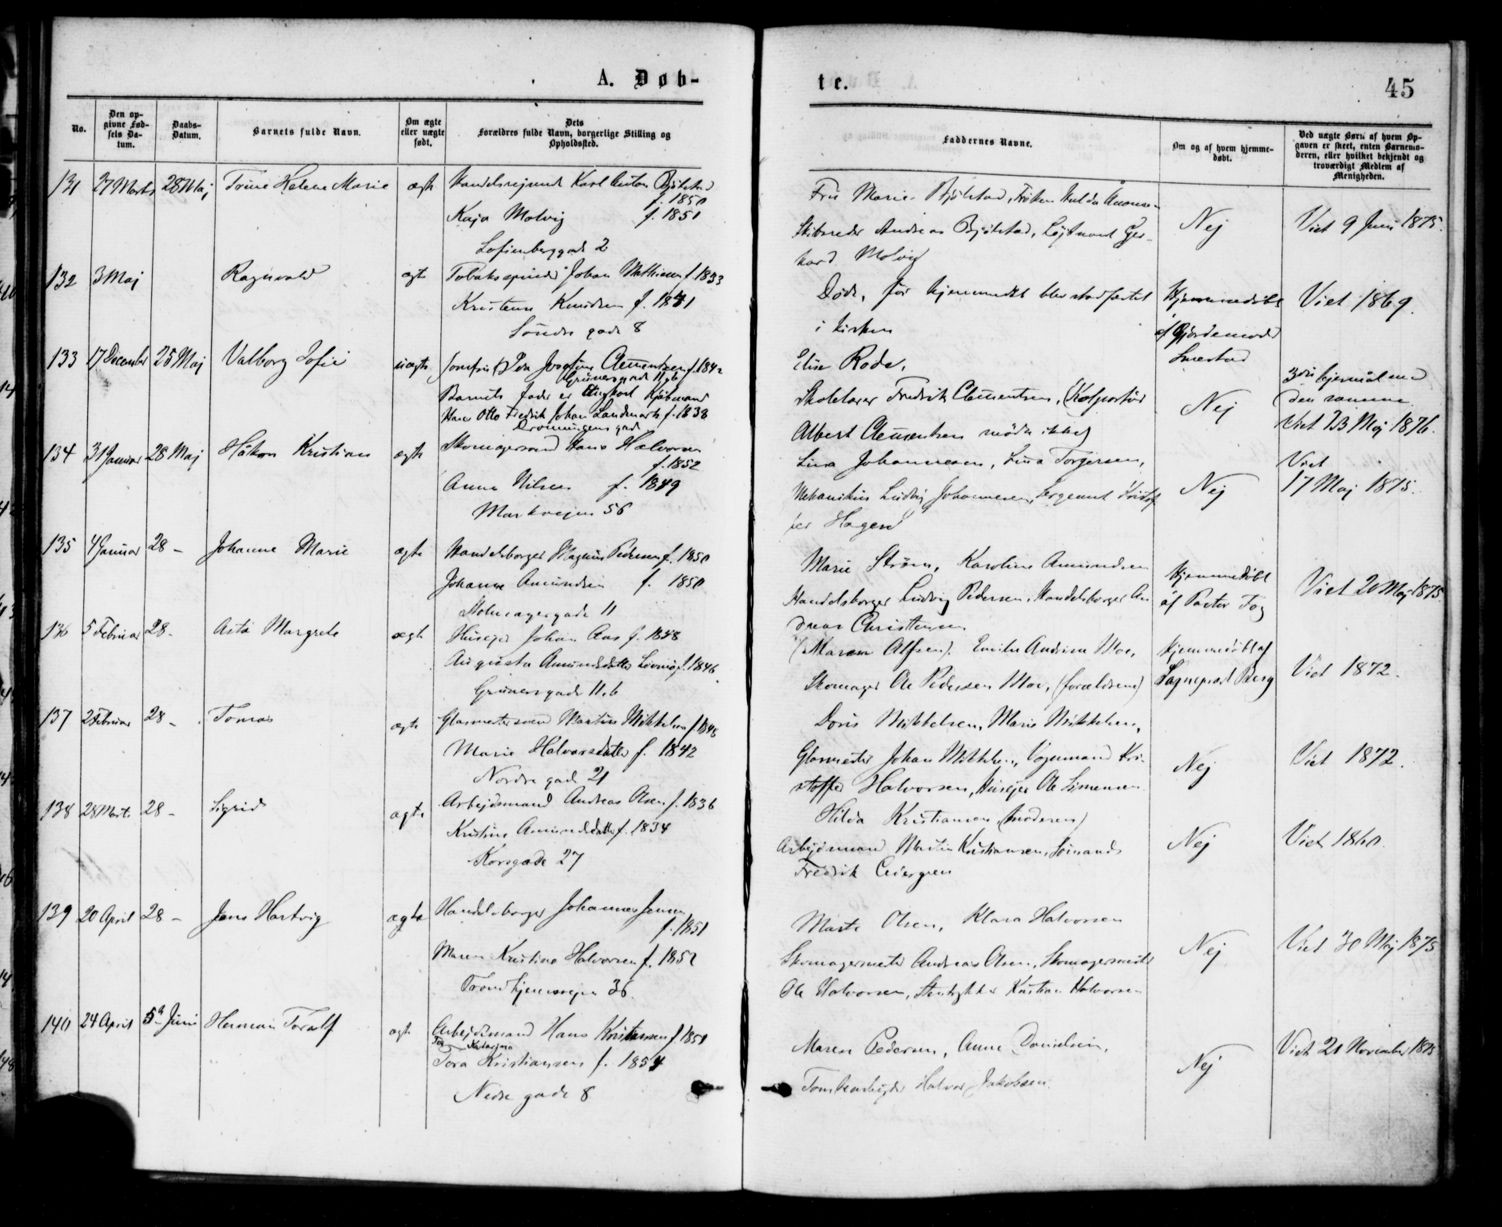 A. Døb-
te.
45
No.
Den op-
givne Fød-
sels Da-
tum.
Daabs-
Datum.
Barnets fulde Navn.
Om ægte
eller uægte
født.
Dets
Forældres fulde Navn, borgerlige Stilling og
Opholdssted.
Faddernes Navne.
Om og af hvem hjemme-
døbt.
Ved uægte Børn af hvem Op-
gaven er skeet, enten Barnemo-
deren, eller hvilket bekjendt og
troværdigt Medlem af
Menigheden.
131 27 Marts 28 Maj Helene Marie ægte Karl Anton Bjølstad
f. 1850
Kaja Molvig f. 1851
Sofienberggade 2
Marie Bjølstad, Frøken Hulda
Skibsreder Andreas Bjølstad, Løjtnant Ger-
hard Molvig
Nej
Viet 9 Juni 1875.
132 3 Maj Ragnvald ægte Johan Mathisen f. 1853
Knudsen f. 1851
Søndre gade 8
Døde, før hjemmedåb blev stadfæstet
i kirken
Hjemmedøbt
af Gjordemoder
Viet 1869.
133 17 December 25 Maj Valborg Sofie uægte Clementsen f. 1842
Grünersgade 11 b
Barnets fader er Kjøbmand
Hans Otto Fredrik Johan Landmark f. 1838
Dronningens gade
Elise Rode,
Skolelærer Fredrik Clementsen, (Kolportør
Albert Clementsen mødte ikke)
Nej
den samme
Viet 23 Maj 1876.
134 31 Januar 28 Maj Håkon Kristian ægte Skomagersvend Hans Halvorsen
f. 1852
Anna Nilsen f. 1849
Markvejen 56
Lina Johannesen, Lina Torgersen,
Mekanikus Ludvig Johannesen, Sergeant Kristof-
fer Hagen
Nej
Viet
17 Maj 1875.
135 4 Januar 28 - Johanne Marie ægte Handelsborger Magnus Pedersen f. 1850
Johanne Amundsen f. 1850
11
Marie Strøm, Karoline Amundsen
Handelsborger Ludvig Pedersen, Handelsborger An-
dreas Christensen
Hjemmedøbt
af Pastor
Viet 20 Maj 1875
136 5 Februar 28 - Asta Margrete ægte Husejer Johan Aas f. 1848
Augusta Amundsdatter f. 1846.
Grünersgade 11 b
Maren Alfsen, Emilie Andrine Moe,
Skomager Ole Pedersen Moe, (forældrene)
Hjemmedøbt af
Sognepræst Berg
Viet 1872.
137 2 Februar 28 - Tomas ægte Glasmestersvend Martin Mikkelsen f. 1845
Marie Halvorsdatter f. 1842
Nordre gade 21
Doris Mikkelsen, Marie Mikkelsen,
Glasmester Johan Mikkelsen, Vognmand Kri-
stoffer Halvorsen, Husejer Ole Simensen
Nej
Viet 1872.
138 28 Marts 28 - Sigrid ægte Arbejdsmand Andreas Olsen f. 1836
Kristine Amundsdatter f. 1834
Korsgade 27
Hilda Kristiansen (moderen)
Arbejdsmand Martin Kristiansen, Sømand
Fredrik Cedergren
Nej
Viet 1860.
139 20 April 28 - Jens Hartvig ægte Handelsborger Johannes Jensen
f. 1851
Maren Kristine Halvorsen f. 1852
Trondhjemsvejen 36
Marte Olsen, Klara Halvorsen
Skomagermester Andreas Olsen, Skomagermester
Ole Halvorsen, Kristian Halvorsen
Nej
Viet 30 Maj 1875
140 24 April 5te Juni Herman Toralf ægte Arbejdsmand Hans Kristiansen f. 1851
Tora Kristiansen f. 1854
Nedre gade 8
Maren Pedersen, Anne Danielsen,
Halvor Jakobsen
Nej
Viet 21 November 1875